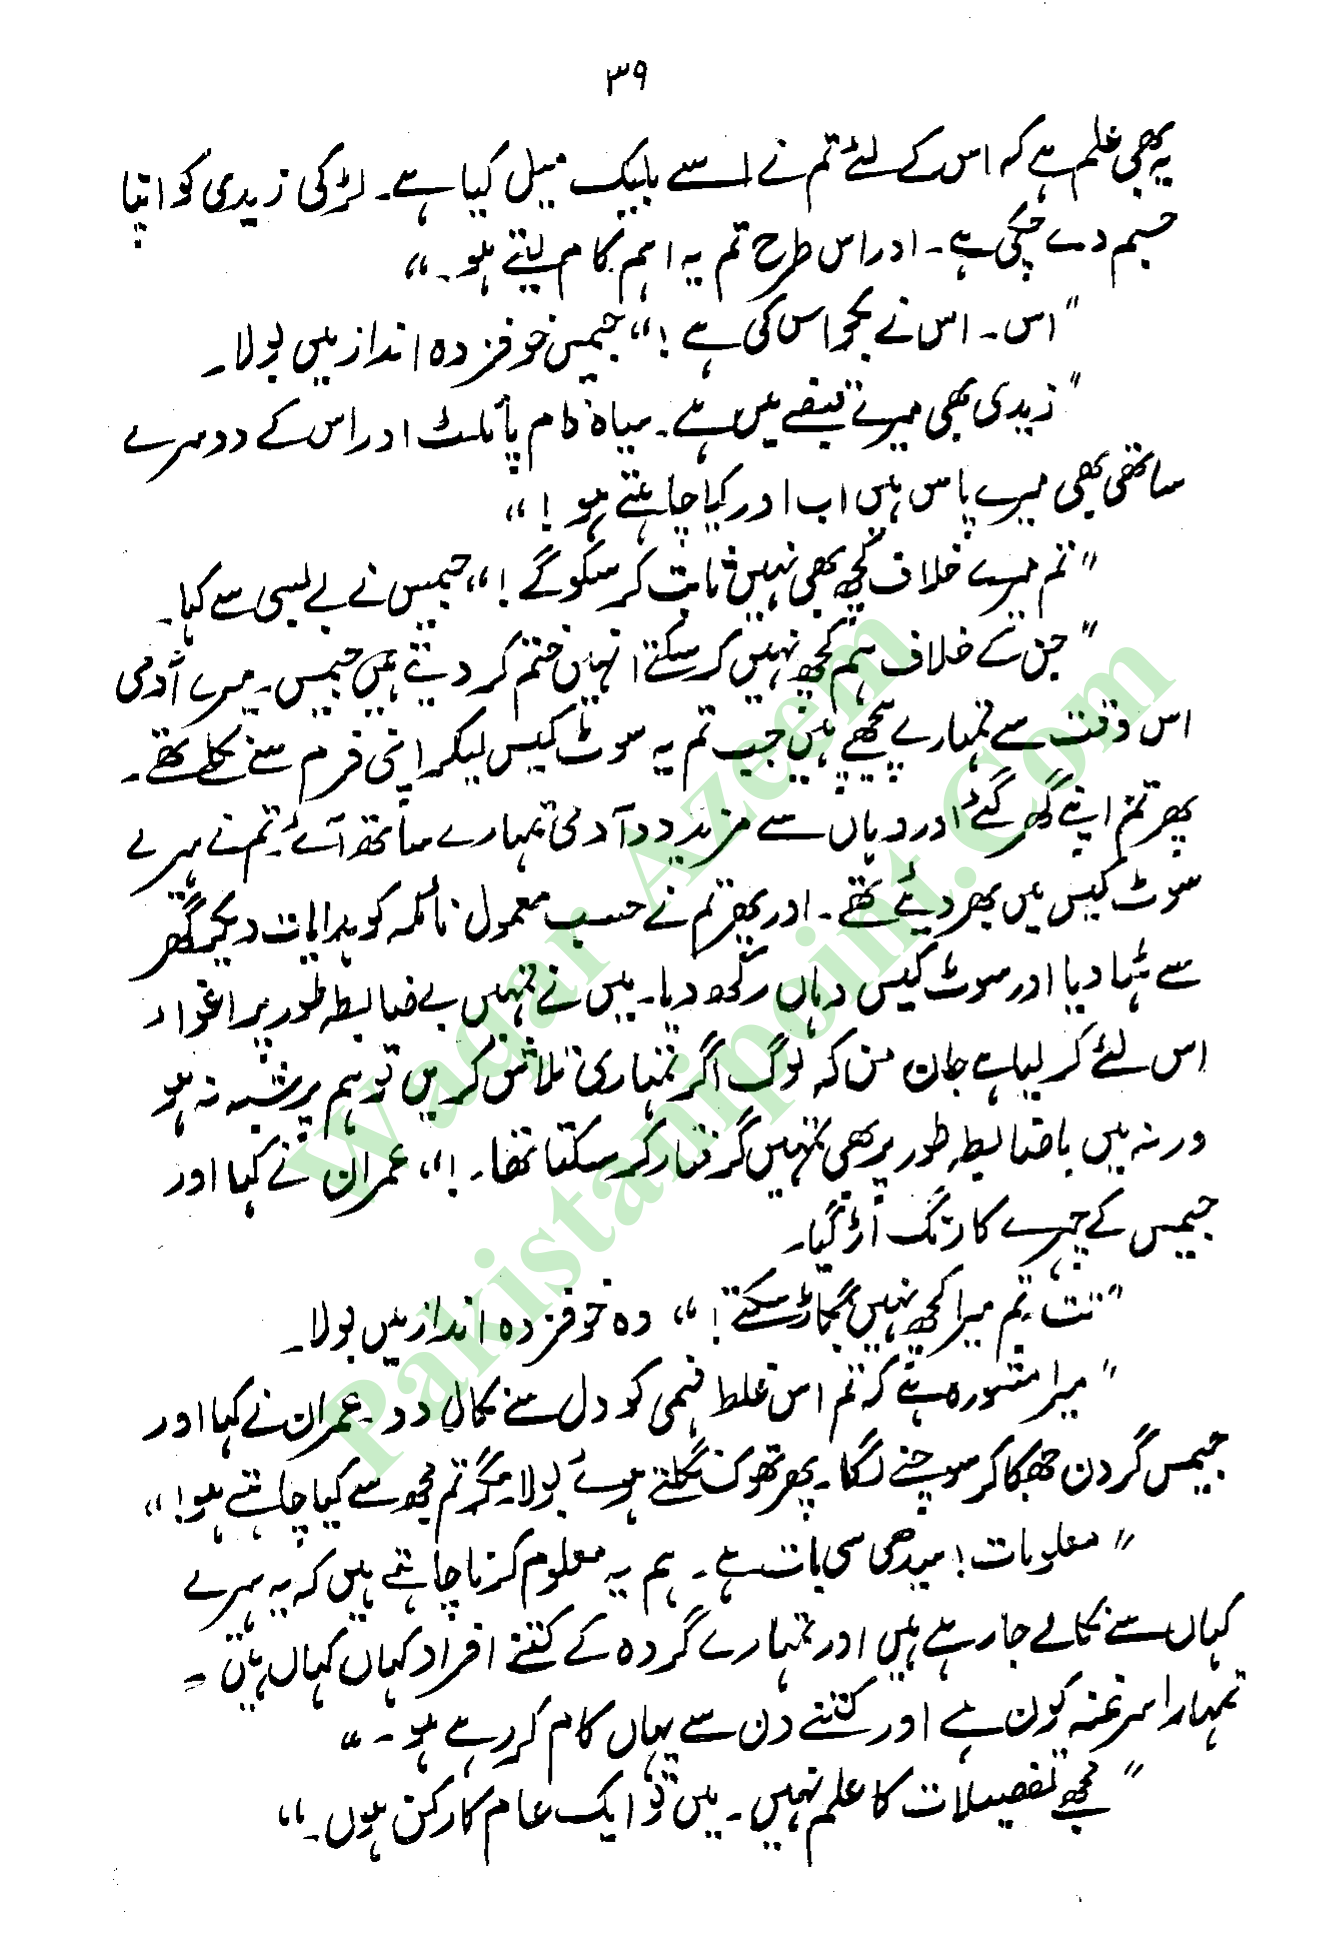 ۳۹
یہ بھی علم ہے کہ اس کے لئے تم نے اسے بلیک میل کیا ہے۔ لڑکی زیدی کو اپنا
جسم دے چکی ہے۔ اور اس طرح تم یہ اہم کام لیتے ہو۔“
”اس۔ اس نے بکواس کی ہے!“ جیمس خوفزدہ انداز میں بولا۔
”زیدی بھی میرے قبضے میں ہے۔ سیاہ فام پائلٹ اور اس کے دوسرے
ساتھی بھی میرے پاس ہیں اب اور کیا چاہتے ہو!“
”تم میرے خلاف کچھ بھی نہیں ثابت کر سکو گے!“ جیمس نے بے بسی سے کہا۔
”جن کے خلاف ہم کچھ نہیں کر سکتے انہیں ختم کر دیتے ہیں جیمس۔ میرے آدمی
اس وقت سے تمہارے پیچھے ہیں جب تم یہ سوٹ کیس لیکر اپنی فرم سے نکلے تھے۔
پھر تم اپنے گھر گئے اور وہاں سے مزید دو آدمی تمہارے ساتھ آئے۔ تم نے ہیرے
سوٹ کیس میں بھر دیئے تھے۔ اور پھر تم نے حسب معمول نائمہ کو ہدایات دیکر گھر
سے ہٹا دیا اور سوٹ کیس وہاں رکھ دیا۔ میں نے تمہیں بے ضابطہ طور پر اغواء
اس لئے کر لیا ہے جان من کہ لوگ اگر تمہاری تلاش کریں تو ہم پر شبہ نہ ہو
ورنہ میں باضابطہ طور پر بھی تمہیں گرفتار کر سکتا تھا۔!“ عمران نے کہا اور
جیمس کے چہرے کا رنگ اڑ گیا۔
”تت۔ تم میرا کچھ نہیں بگاڑ سکتے!“ وہ خوفزدہ انداز میں بولا۔
”میرا مشورہ ہے کہ تم اس غلط فہمی کو دل سے نکال دو۔ عمران نے کہا اور
جیمس گردن جھکا کر سوچنے لگا۔ پھر تھوک نگلتے ہوئے بولا۔ مگر تم مجھ سے کیا چاہتے ہو!“
”معلومات! سیدھی سی بات ہے۔ ہم یہ معلوم کرنا چاہتے ہیں کہ یہ ہیرے
کہاں سے نکالے جا رہے ہیں اور تمہارے گروہ کے کتنے افراد کہاں کہاں ہیں۔
تمہارا سرغنہ کون ہے اور کتنے دن سے یہاں کام کر رہے ہو۔“
”مجھے تفصیلات کا علم نہیں۔ میں تو ایک عام کارکن ہوں۔“
Waqar Azeem
Pakistanipoint.Com